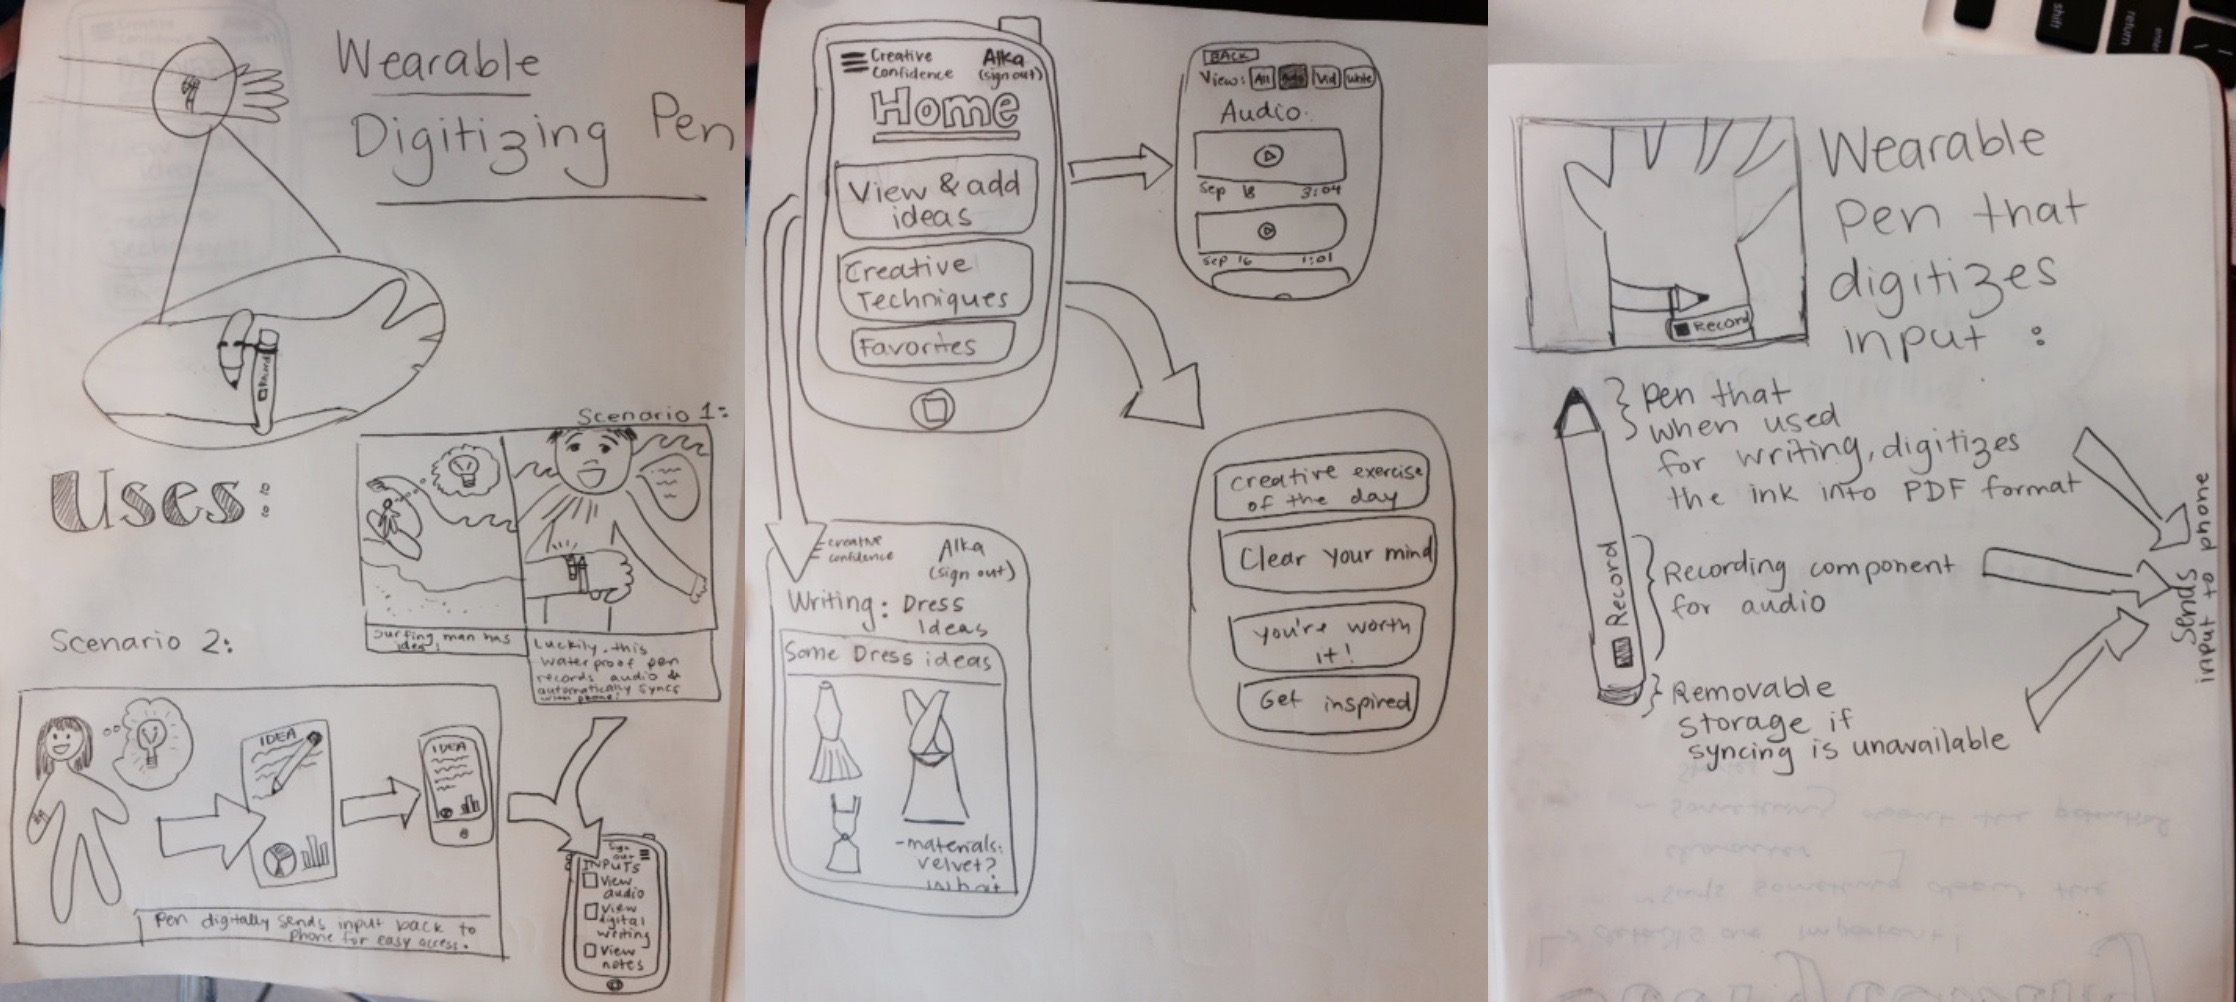 Wearable
Digitizing Pen
Record
Uses:
Scenario 1:
Surfing man has
idea!
Luckily, this
waterproof pen
records audio &
automatically syncs
with phone!
Scenario 2:
IDEA
IDEA
Pen digitally sends input back to
phone for easy access.
Sign
out
INPUTS
View
audio
View
digital
writing
View
notes
Creative
Confidence
Alka
(sign out)
Home
View & add
ideas
Creative
Techniques
Favorites
BACK
View: All Audio Vid Write
Audio
Sep 18 3:04
Sep 16 1:01
creative exercise
of the day
Clear your mind
you're worth
it!
Get inspired
creative
confidence
Alka
(sign out)
Writing: Dress
Ideas
Some Dress ideas
-materials:
velvet?
What
shift
return
enter
Record
Wearable
pen that
digitizes
input :
pen that
when used
for writing, digitizes
the ink into PDF format
Record
Recording component
for audio
Removable
storage if
syncing is unavailable
Sends
input to phone